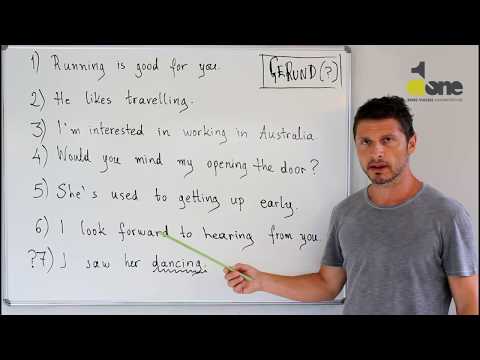 GERUND(?)
1) Running is good for you.
2) He likes travelling.
3) I'm interested in working in Australia.
4) Would you mind my opening the door?
5) She's used to getting up early.
6) I look forward to hearing from you.
?7) I saw her dancing.
done